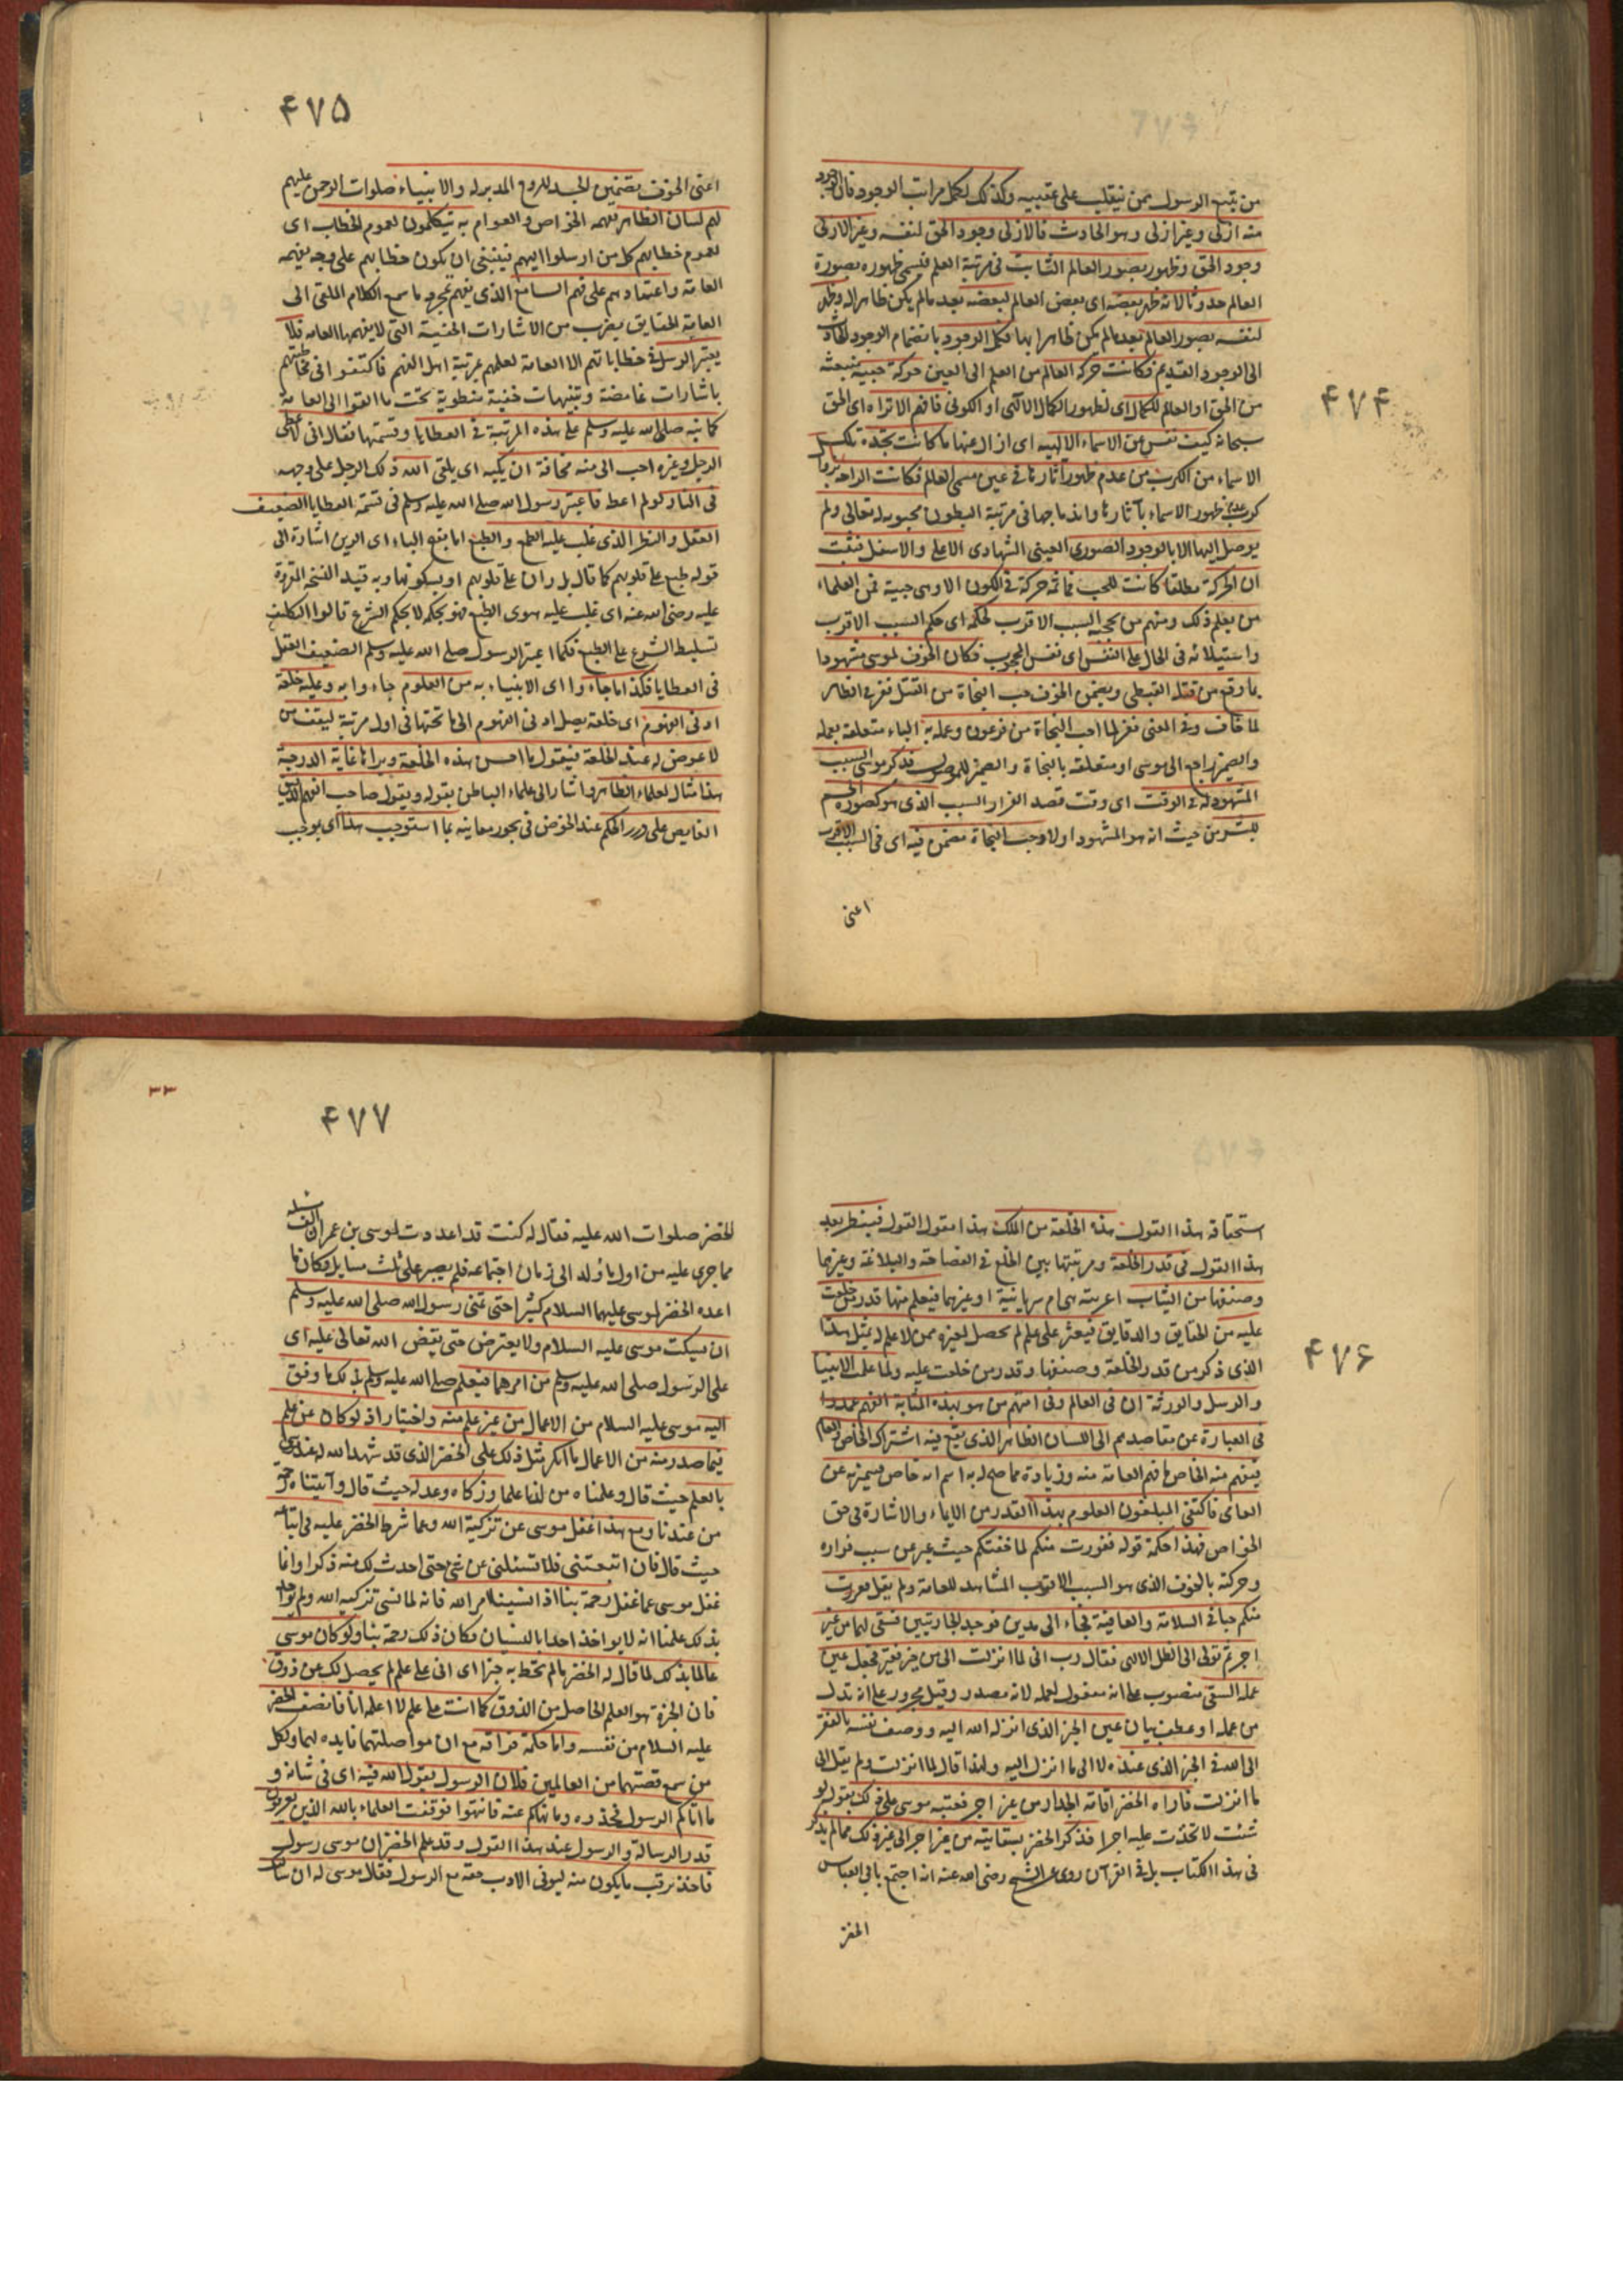 ۴۷۴
من يتبع الرسول ممن ينقلب على عقبيه وكذلك لكمل مراتب الوجود فان الوجود
منه ازلى وغير ازلى وهو الحادث فالازلى وجود الحق لنفسه وغير الازلى
وجود الحق وظهوره بصور العالم الثابت فى مرتبة العلم فيسمى ظهوره بصورة
العالم حدوثا لانه ظهر بعضه اى بعض العالم لبعضه بعد مالم يكن ظاهرا له وظهر
لنفسه بصور العالم بعد مالم يكن ظاهرا بها فكمل الوجود بانضمام الوجود الحادث
الى الوجود القديم فكانت حركة العالم من العلم الى العين حركة حبية منبعثة
من الحق او العالم للكمال اى لظهور الكمال الالهى او الكونى فافهم الا تراه اى الحق
سبحانه كيف نفس عن الاسماء الالهيه اى ازال عنها ما كانت تجده تلك
الاسماء من الكرب من عدم ظهور آثارها فى عين مسمى العالم فكانت الراحة
كرب عدم ظهور الاسماء بآثارها واندماجها فى مرتبة البطون محبوبه له تعالى ولم
يوصل اليها الا بالوجود الصورى العينى الشهادى الاعلى والاسفل فثبت
ان الحركة مطلقا كانت للحب فما ثمة حركة فى الكون الا وهى حبية فمن العلماء
من يعلم ذلك ومنهم من يحجبه السبب الاقرب لحكمه اى حكم السبب الاقرب
واستيلائه فى الحال على النفس اى نفس المحجوب فكان الخوف لموسى مشهودا
بما وقع من قتله القبطى ويضمن الخوف حب النجاة من القتل ففر فى الظاهر
لما خاف وفى المعنى ففر لما احب النجاة من فرعون وعمله به الباء متعلقة بعمله
والضمير راجع الى موسى او متعلقة بالنجاة والضمير للموصول فذكر موسى السبب
المشهود له فى الوقت اى وقت قصد الفرار السبب الذى هو كصورة الجسم
للبشر من حيث انه هو المشهود اولا وحب النجاة مضمن فيه اى فى السبب الاقرب
اعنى
۴۷۵
اعنى الخوف تضمين الجسد للروح المدبر له والانبياء صلوات الرحمن عليهم
لهم لسان الظاهر يفهمه الخواص والعوام به يتكلمون لعموم الخطاب اى
لعموم خطابهم كل من ارسلوا اليهم فينبغى ان يكون خطابهم على وجه يفهمه
العامة واعتمادهم على فهم السامع الذى يفهم بمجرد ما سمع الكلام الملقى الى
العامة الحقايق بضرب من الاشارات الخفية التى لا يفهمها العامه فلا
يعتبر الرسل فى خطاباتهم الا العامة لعلمهم بمرتبة اهل الفهم فاكتفوا فى مخاطبتهم
باشارات غامضة وتنبيهات خفية منطوية تحت ما القوا الى العامة
كما نبه صلى الله عليه وسلم على هذه المرتبة فى العطايا وقسمتها فقال انى لاعطى
الرجل وغيره احب الى منه مخافة ان يكبه اى يلقى الله ذلك الرجل على وجهه
فى النار لو لم اعط فاعتبر رسول الله صلى الله عليه وسلم فى قسمة العطايا الضعيف
العقل والنظر الذى غلب عليه الطمع والطبع اما بفتح الباء اى الرين اشارة الى
قوله طبع على قلوبهم كما قال بل ران على قلوبهم او بسكونها وبه قيد النسخه المقروة
عليه رضى الله عنه اى غلب عليه هوى الطبع فهو بحكمه لا بحكم الشرع قالوا التكليف
تسليط الشرع على الطبع فكما اعتبر الرسول صلى الله عليه وسلم الضعيف العقل
فى العطايا فكذا ما جاءوا اى الانبياء به من العلوم جاءوا به وعليه خلعة
ادنى الفهوم اى خلعة يصل ادنى الفهوم الى ما تحتها فى اول مرتبة ليقف من
لا غوص له عند الخلعة فيقول ما احسن هذه الخلعة ويراها غاية الدرجة
هذا مثال لعلماء الظاهر واشار الى علماء الباطن بقوله ويقول صاحب الفهم الدقيق
الغايص على درر الحكم عند الخوض فى بحور معانيه بما استوجب هذا اى بموجب
۴۷۶
استحقاقه هذا القول هذه الخلعة من الملك هذا مقول القول فينظر بعد
هذا القول فى قدر الخلعة ومرتبتها بين الخلع فى الفصاحة والبلاغة وغيرهما
وصنفها من الثياب اعربية هى ام سريانية او غيرهما فيعلم منها قدر من خلعت
عليه من الحقايق والدقايق فيعثر على علم لم يحصل لغيره ممن لا علم له بمثل هذا
الذى ذكر من قدر الخلعة وصنفها وقدر من خلعت عليه ولما علمت الانبيا
والرسل والورثة ان فى العالم وفى امتهم من هو بهذه المثابة الفهم عمدوا
فى العبارة عن مقاصدهم الى اللسان الظاهر الذى يقع فيه اشتراك الخاص والعام
فيفهم منه الخاص ما فهم العامة منه وزيادة مما صح له به اسم انه خاص فيميز به عن
العامى فاكتفى المبلغون العلوم بهذا القدر من الايماء والاشارة فى حق
الخواص فهذا حكمة قوله ففررت منكم لما خفتكم حيث عبر عن سبب فراره
وحركته بالخوف الذى هو السبب الاقرب المشاهد للعامة ولم يقل ففررت
منكم حبا فى السلامة والعافية فجاء الى مدين فوجد الجاريتين فسقى لهما من غير
اجر ثم تولى الى الظل الالهى فقال رب انى لما انزلت الى من خير فقير فجعل عين
عمله السقى منصوب على انه مفعول لعمله لانه مصدر وقيل مجرور على انه بدل
من عمله او عطف بيان عين الخير الذى انزله الله اليه ووصف نفسه بالفقر
الى الله فى الخير الذى عنده لا الى ما انزل اليه ولهذا قال لما انزلت ولم يقل الى
ما انزلت فاراه الخضر اقامة الجدار من غير اجر فعتبه موسى على ذلك بقوله لو
شئت لاتخذت عليه اجرا فذكر الخضر بسقايته من غير اجر الى غير ذلك مما لم يذكر
فى هذا الكتاب بل فى القرآن روى عن الشيخ رضى الله عنه انه اجتمع بابى العباس
الخضر
۳۳
۴۷۷
الخضر صلوات الله عليه فقال له كنت قد اعددت لموسى بن عمران الف مسئلة
مما جرى عليه من اول ما ولد الى زمان اجتماعه فلم يصبر على ثلث مسايل فكان ما
اعده الخضر لموسى عليهما السلام كثيرا حتى تمنى رسول الله صلى الله عليه وسلم
ان يسكت موسى عليه السلام ولا يعترض حتى يقص الله تعالى عليه اى
على الرسول صلى الله عليه وسلم من امرهما فيعلم صلى الله عليه وسلم بذلك ما وفق
اليه موسى عليه السلام من الاعمال من غير علم منه واختيار اذ لو كان عن علم
فيما صدر منه من الاعمال ما انكر مثل ذلك على الخضر الذى قد شهد الله له عند موسى
بالعلم حيث قال وعلمناه من لدنا علما وزكاه وعدله حيث قال وآتيناه رحمة
من عندنا ومع هذا غفل موسى عن تزكية الله وعما شرط الخضر عليه فى اتباعه
حيث قال فان اتبعتنى فلا تسئلنى عن شئ حتى احدث لك منه ذكرا وانما
غفل موسى عما غفل رحمة بنا اذا نسينا امر الله فانه لما نسى تزكيه الله ولم يؤاخذ
بذلك علمنا انه لا يواخذ احدا بالنسيان فكان ذلك رحمة بنا ولو كان موسى
عالما بذلك لما قال له الخضر ما لم تحط به خبرا اى انى على علم لم يحصل لك عن ذوق
فان الخبرة هو العلم الحاصل من الذوق كما انت على علم لا اعلمه انا فانصف الخضر
عليه السلام من نفسه واما حكمة فراقه مع ان مواصلتهما فايده لهما ولكل
من سمع قصتهما من العالمين فلان الرسول يقول الله فيه اى فى شانه و
ما اتاكم الرسول فخذوه وما نهاكم عنه فانتهوا فوقفت العلماء بالله الذين يعرفون
قدر الرسالة والرسول عند هذا القول وقد علم الخضر ان موسى رسول
فاخذ يرقب ما يكون منه ليوفى الادب حقه مع الرسول فقال موسى له ان سألتك